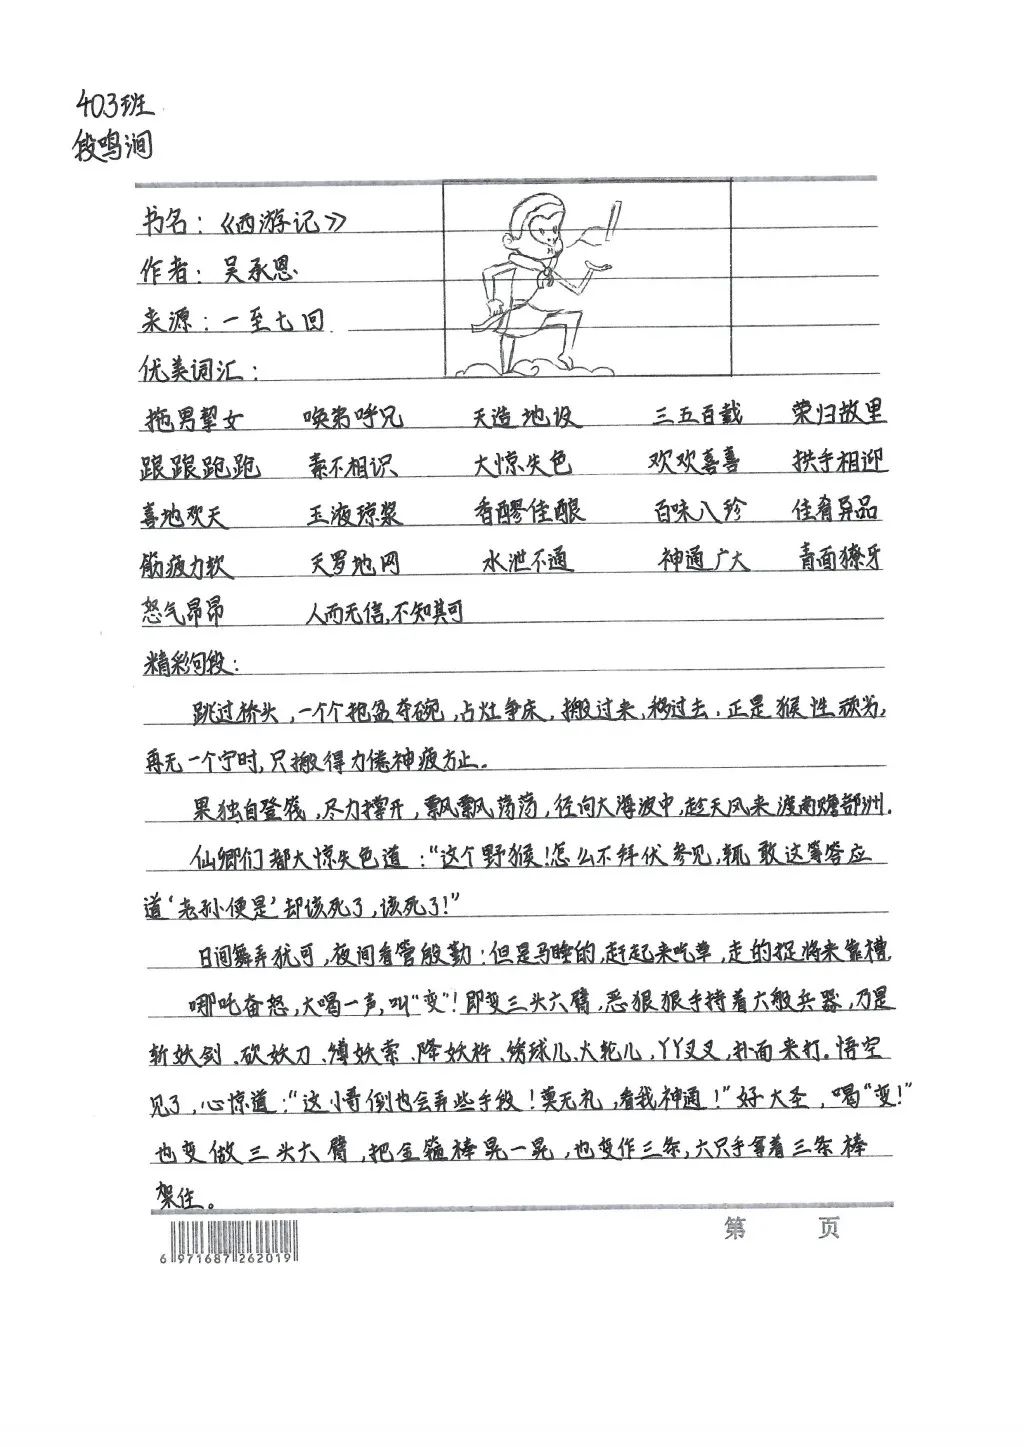 403班
段鸣涧
书名：《西游记》
作者：吴承恩
来源：一至七回
优美词汇：
拖男挈女 唤弟呼兄 天造地设 三五百载 荣归故里
踉踉跄跄 素不相识 大惊失色 欢欢喜喜 拱手相迎
喜地欢天 玉液琼浆 香醪佳酿 百味八珍 佳肴异品
筋疲力软 天罗地网 水泄不通 神通广大 青面獠牙
怒气昂昂 人而无信,不知其可
精彩句段：
跳过桥头，一个个抢盆夺碗，占灶争床，搬过来，移过去．正是猴性顽劣，
再无一个宁时,只搬得力倦神疲方止．
果独自登筏，尽力撑开，飘飘荡荡，径向大海波中,趁天风来渡南赡部洲．
仙卿们都大惊失色道：“这个野猴！怎么不拜伏参见,辄敢这等答应
道‘老孙便是’却该死了,该死了!”
日间舞弄犹可，夜间看管殷勤：但是马睡的,赶起来吃草，走的捉将来靠槽．
哪吒奋怒，大喝一声,叫“变”！即变三头六臂，恶狠狠手持着六般兵器，乃是
斩妖剑、砍妖刀、缚妖索、降妖杵、绣球儿、火轮儿，丫丫叉叉，扑面来打．悟空
见了，心惊道：“这小哥倒也会弄些手段！莫无礼，看我神通！”好大圣，喝“变！”
也变做三头六臂，把金箍棒晃一晃，也变作三条,六只手拿着三条棒
架住。
第 页
6 971687 262019